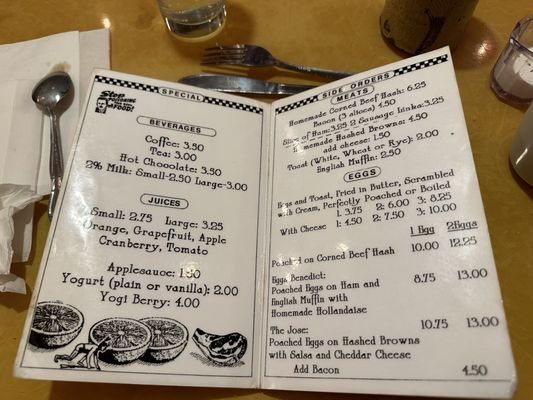 SPECIAL
Stop
DROOLING
FOOD!
BEVERAGES
Coffee: 3.50
Tea: 3.00
Hot Chocolate: 3.50
2% Milk: Small-2.50 Large-3.00
JUICES
Small: 2.75 Large: 3.25
Orange, Grapefruit, Apple
Cranberry, Tomato
Applesauce: 1.50
Yogurt (plain or vanilla): 2.00
Yogi Berry: 4.00
SIDE ORDERS
MEATS
Homemade Corned Beef Hash: 6.25
Bacon (3 slices) 4.50
Slice of Ham: 3.25 2 Sausage Links: 3.25
Homemade Hashed Browns: 4.50
add cheese: 1.50
Toast (White, Wheat or Rye): 2.00
English Muffin: 2.50
EGGS
Eggs and Toast, Fried in Butter, Scrambled
with Cream, Perfectly Poached or Boiled
1: 3.75 2: 6.00 3: 8.25
With Cheese 1: 4.50 2: 7.50 3: 10.00
1 Egg 2Eggs
Poached on Corned Beef Hash 10.00 12.25
Eggs Benedict: 8.75 13.00
Poached Eggs on Ham and
English Muffin with
Homemade Hollandaise
The Jose: 10.75 13.00
Poached Eggs on Hashed Browns
with Salsa and Cheddar Cheese
Add Bacon 4.50